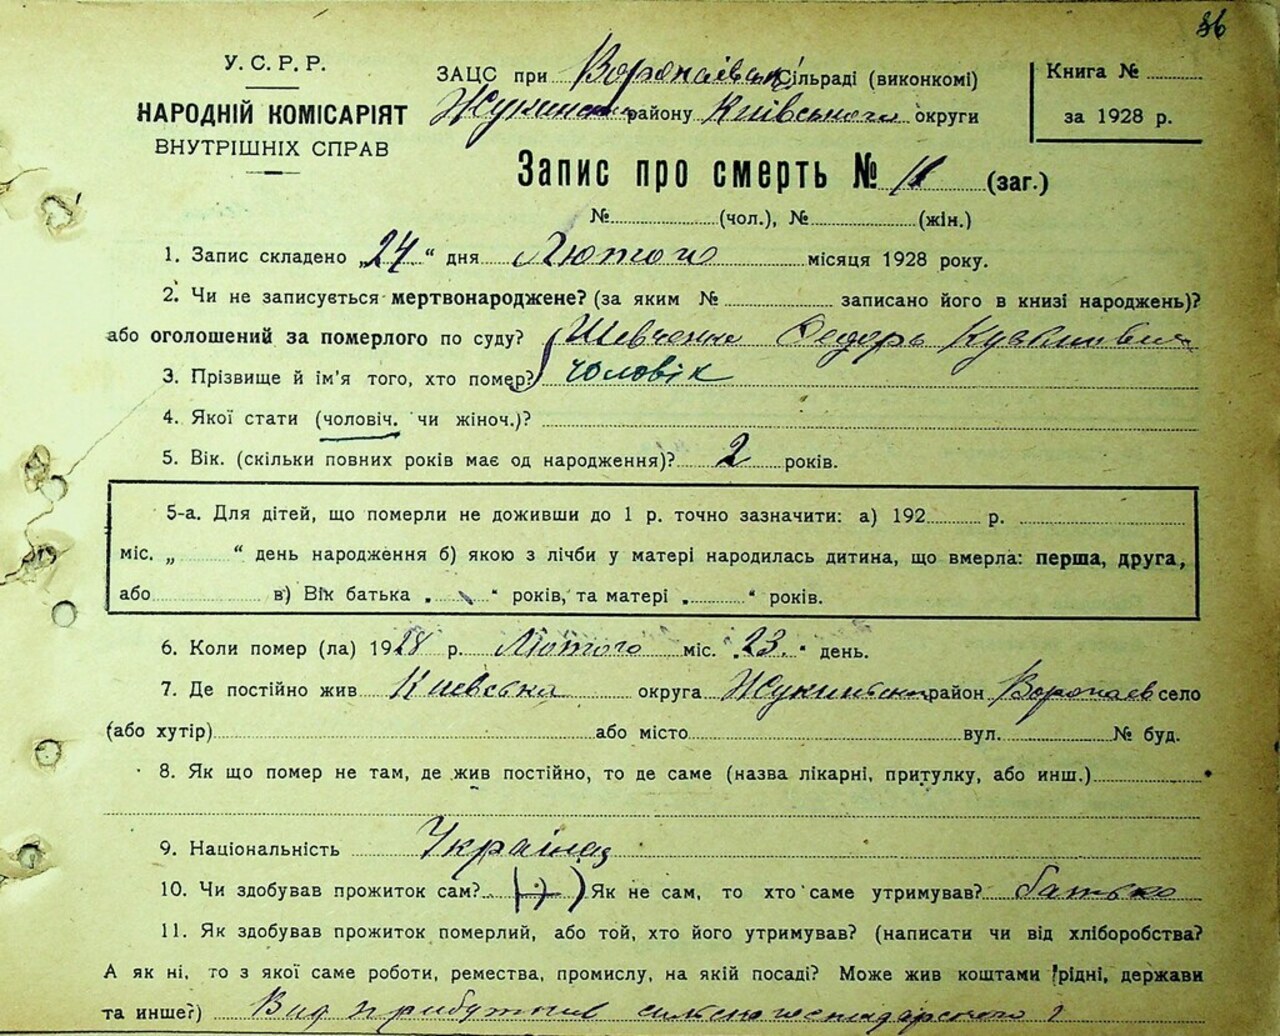 36
У. С. Р. Р.
НАРОДНІЙ КОМІСАРІЯТ
ВНУТРІШНІХ СПРАВ
ЗАЦС при Воропаївськ. Сільраді (виконкомі)
Жукинськ. району Київського округи
Книга №
за 1928 р.
Запис про смерть № 11 (заг.)
№ (чол.), № (жін.)
1. Запис складено „24“ дня Лютого місяця 1928 року.
2. Чи не записується мертвонароджене? (за яким № записано його в книзі народжень)?
або оголошений за померлого по суду? Шевченко Федорь
3. Прізвище й ім'я того, хто помер? чоловік
4. Якої стати (чоловіч. чи жіноч.)?
5. Вік. (скільки повних років має од народження)? 2 років.
5-а. Для дітей, що померли не доживши до 1 р. точно зазначити: а) 192 р.
міс. „ “ день народження б) якою з лічби у матері народилась дитина, що вмерла: перша, друга,
або в) Вік батька „ “ років, та матері „ “ років.
6. Коли помер (ла) 1928 р. Лютого міс. „23.“ день.
7. Де постійно жив Киевська округа Жукинськ район Воропаев село
(або хутір) або місто вул. № буд.
8. Як що помер не там, де жив постійно, то де саме (назва лікарні, притулку, або инш.)
9. Національність
10. Чи здобував прожиток сам? (-) Як не сам, то хто саме утримував? батько
11. Як здобував прожиток померлий, або той, хто його утримував? (написати чи від хліборобства?
А як ні, то з якої саме роботи, ремества, промислу, на якій посаді? Може жив коштами рідні, держави
та инше?) Вид прибутків сильськогосподарського